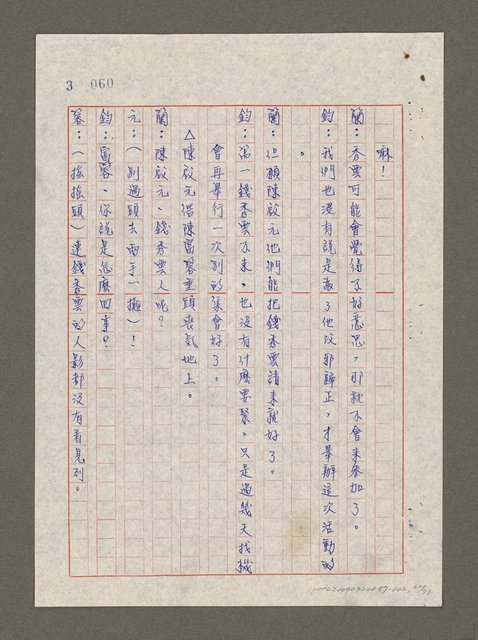 3 060
嘛！
蘭：秀雲可能會覺得不好意思，那就不會來參加了。
鈞：我們也沒有說是為了他改邪歸正，才舉辦這次活動的
。
蘭：但願陳啟元他們能把錢秀雲請來就好了。
鈞：萬一錢秀雲不來，也沒有什麼要緊。只是過幾天找機
會再舉行一次別的集會好了。
△陳啟元偕陳富蓉垂頭喪氣地上。
蘭：陳啟元、錢秀雲人呢？
元：（別過頭去兩手一攤）！
鈞：富蓉、你說是怎麼回事？
蓉：（搖搖頭）連錢秀雲的人影都沒有看見到。